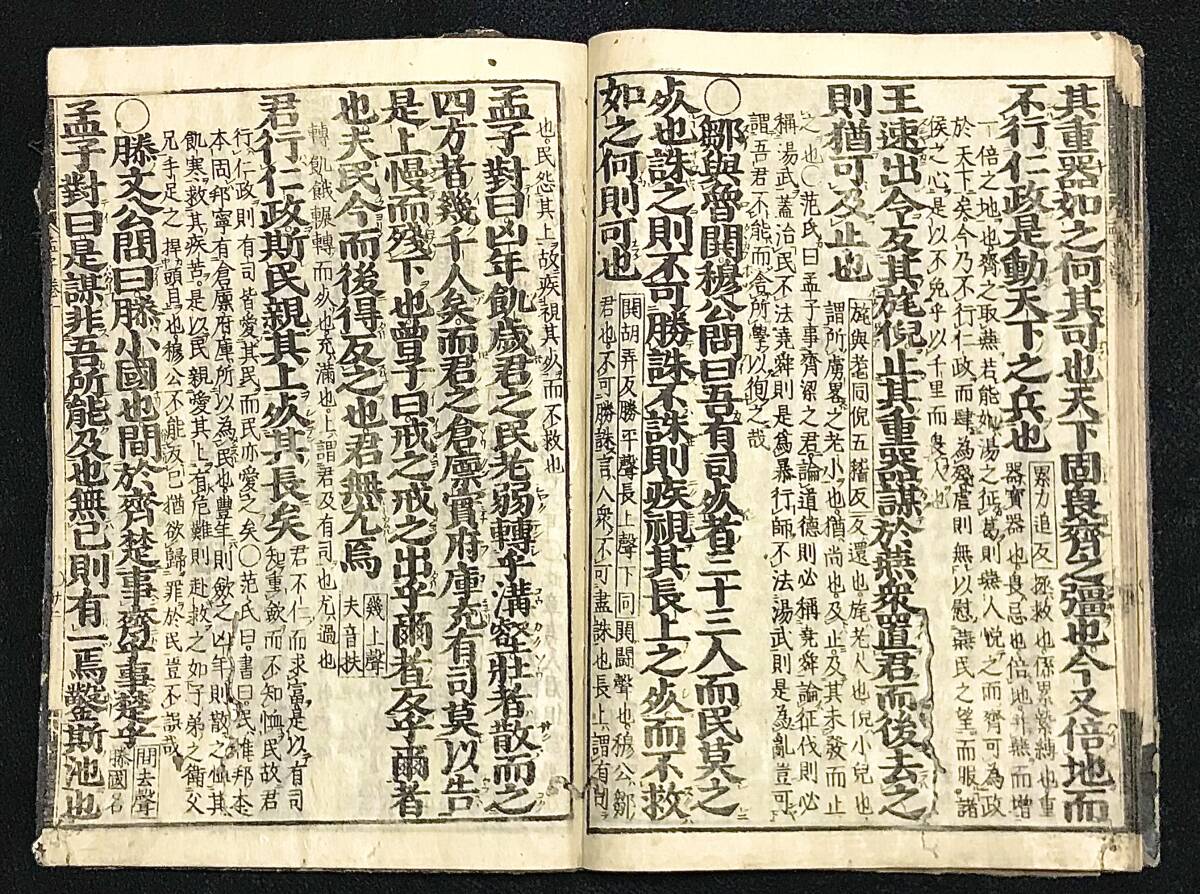 其重器如之何其可也天下固畏齊之彊也今又倍地而
不行仁政是動天下之兵也累力追反拯救也係累縶縛也重器寶器也畏忌也倍地并燕而增
一倍之地也齊之取燕若能如湯之征葛則燕人悅之而齊可為政
於天下矣今乃不行仁政而肆為殘虐則無以慰燕民之望而服諸
侯之心是以不免乎以千里而畏人也
王速出令反其旄倪止其重器謀於燕衆置君而後去之
則猶可及止也旄與耄同倪五稽反反還也旄老人也倪小兒也謂所虜畧之老小也猶尚也及止及其未發而止
之也○范氏曰孟子事齊梁之君論道德則必稱堯舜論征伐則必
稱湯武蓋治民不法堯舜則是為暴行師不法湯武則是為亂豈可
謂吾君不能而舍所學以徇之哉
○鄒與魯鬨穆公問曰吾有司死者三十三人而民莫之
死也誅之則不可勝誅不誅則疾視其長上之死而不救
如之何則可也鬨胡弄反勝平聲長上聲下同鬨鬪聲也穆公鄒君也不可勝誅言人衆不可盡誅也長上謂有司
也民怨其上故疾視其死而不救也
孟子對曰凶年飢歲君之民老弱轉乎溝壑壯者散而之
四方者幾千人矣而君之倉廩實府庫充有司莫以告
是上慢而殘下也曾子曰戒之戒之出乎爾者反乎爾者
也夫民今而後得反之也君無尤焉幾上聲夫音扶
轉飢餓輾轉而死也充滿也上謂君及有司也尤過也
君行仁政斯民親其上死其長矣君不仁而求富是以有司知重斂而不知恤民故君
行仁政則有司皆愛其民而民亦愛之矣○范氏曰書曰民惟邦本
本固邦寧有倉廩府庫所以為民也豐年則斂之凶年則散之恤其
飢寒救其疾苦是以民親愛其上有危難則赴救之如子弟之衛父
兄手足之捍頭目也穆公不能反己猶欲歸罪於民豈不誤哉
○滕文公問曰滕小國也間於齊楚事齊乎事楚乎間去聲滕國名
孟子對曰是謀非吾所能及也無已則有一焉鑿斯池也